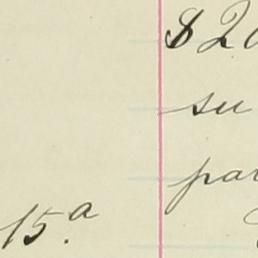 $ 20
su
par
15.a